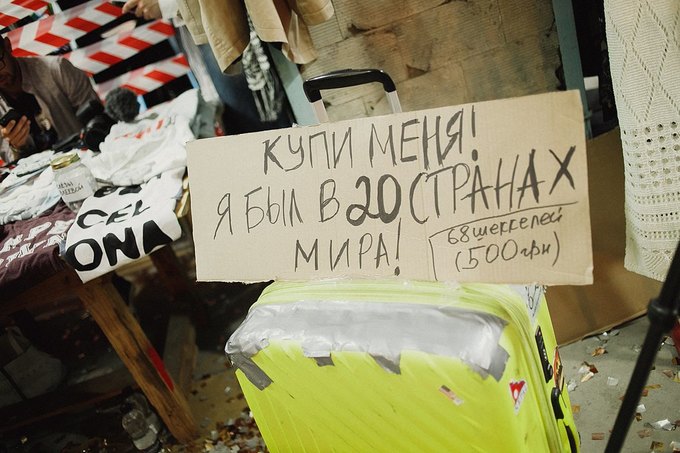 КУПИ МЕНЯ!
Я БЫЛ В 20 СТРАНАХ
МИРА!
68 шеккелей
(500 грн)
CEL
ONA